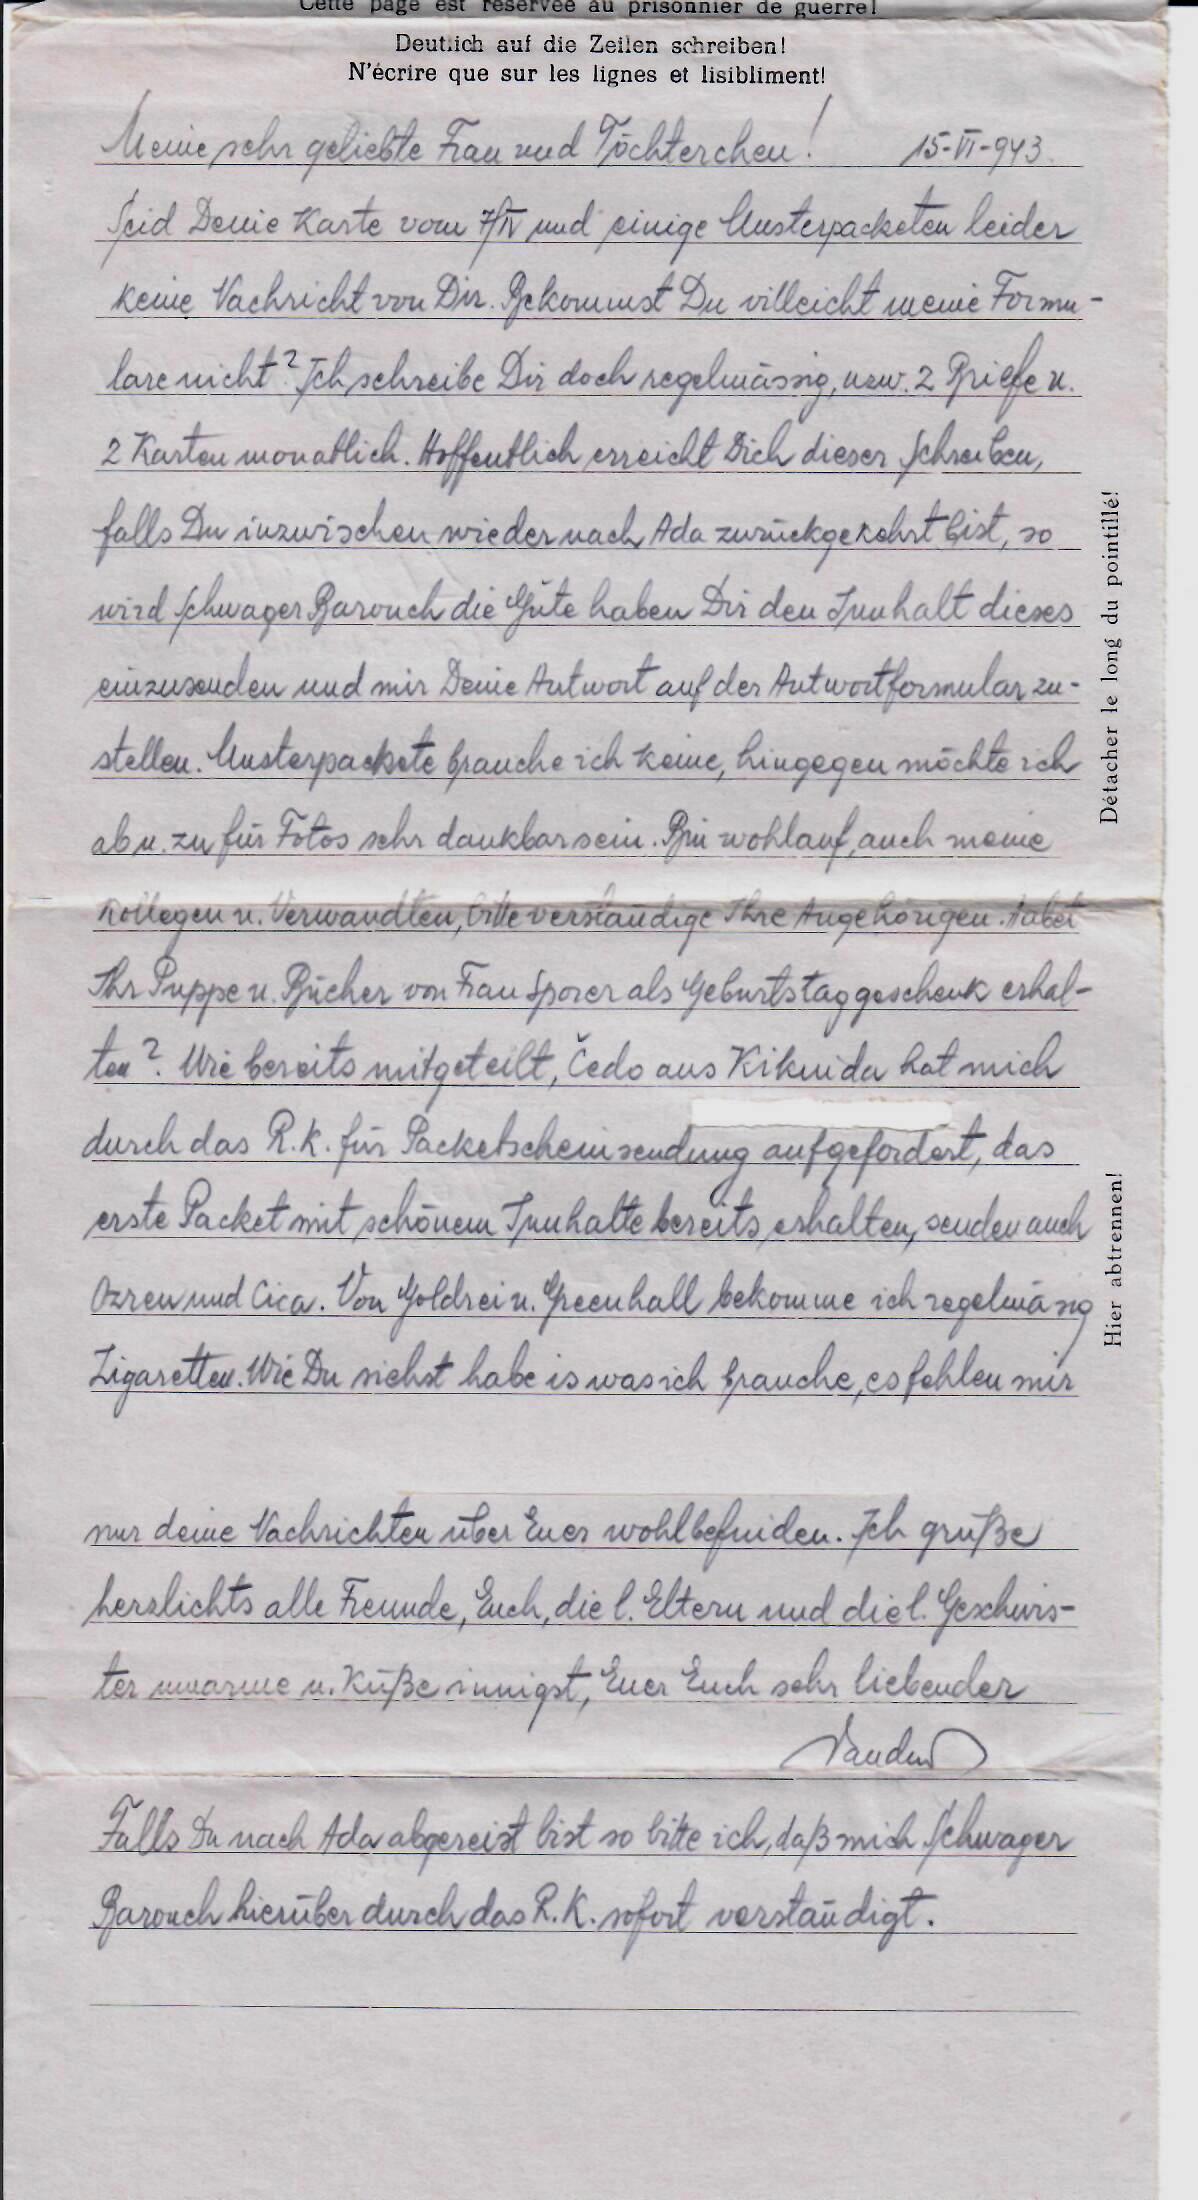 Cette page est réservée au prisonnier de guerre!
Deutlich auf die Zeilen schreiben!
N'écrire que sur les lignes et lisibliment!
Meine sehr geliebte Frau und Töchterchen! 15-VI-943.
Seid Deine Karte vom 7/IV und einige Musterpacketen leider
keine Nachricht von Dir. Bekommst Du villeicht meine Formu-
lare nicht? Ich schreibe Dir doch regelmässig, uzw. 2 Briefe u.
2 Karten monatlich. Hoffentlich erreicht Dich dieser Schreiben,
falls Du inzwischen wieder nach Ada zurückgekehrt bist, so
wird Schwager Barouch die Güte haben Dir den Innhalt dieses
einzusenden und mir Deine Antwort auf der Antwortformular zu-
stellen. Musterpackete brauche ich keine, hingegen möchte ich
ab u. zu für Fotos sehr dankbar sein. Bin wohlauf, auch meine
Kollegen u. Verwandten, bitte verständige Ihre Angehörigen. Habet
Ihr Puppe u. Bücher von Frau Sporer als Geburtstaggeschenk erhal-
ten? Wie bereits mitgeteilt, Čedo aus Kikinda hat mich
durch das R.K. für Packetscheinsendung aufgefordert, das
erste Packet mit schönem Innhalte bereits erhalten, senden auch
Ozren und Cica. Von Goldrei u. Greenhall bekomme ich regelmäsig
Zigaretten. Wie Du siehst habe is was ich brauche, es fehlen mir
nur deine Nachrichten über Euer wohlbefinden. Ich grüße
herzlichts alle Freunde, Euch, die l. Eltern und die l. Geschwis-
ter umarme u. Küße innigst, Euer Euch sehr liebender
Falls Du nach Ada abgereist bist so bitte ich, daß mich Schwager
Barouch hierüber durch das R.K. sofort verständigt.
Détacher le long du pointillé!
Hier abtrennen!